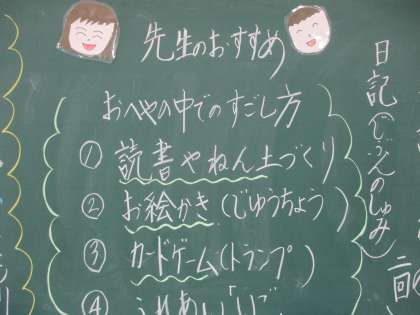 先生のおすすめ
おへやの中でのすごし方
① 読書やねん土づくり
② お絵かき(じゆうちょう)
③ カードゲーム(トランプ)
④ ふれあい「
日記(じぶんのしゅみ)
二回